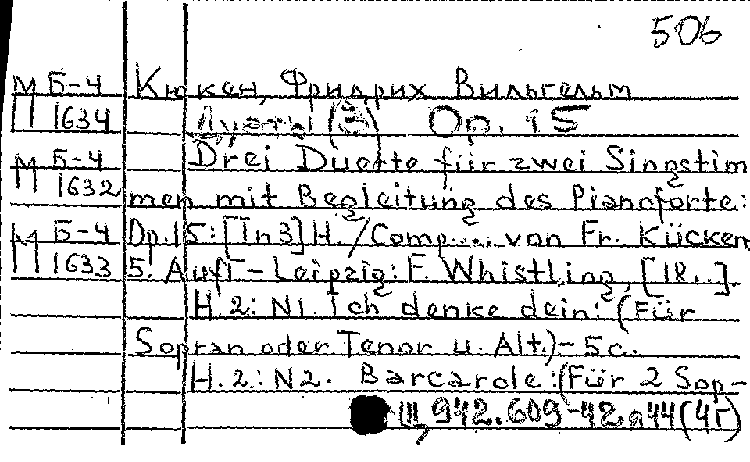 506
М Б-4 Кюкен, Фридрих Вильгельм
П 1634 Дуэты (3) Op. 15
М Б-4 Drei Duette für zwei Singstim
П 1632 men mit Begleitung des Pianoforte:
М Б-4 Op.15:[In3]H./Comp.... von Fr. Kücken
П 1633 5. Aufl.-Leipzig: F. Whistling, [18..].
H.2: N1. Ich denke dein: (Für
Sopran oder Tenor u. Alt.)-5c.
H.2: N2. Barcarole:(Für 2 Sop-
Ш, 942.609-42 а 44(4г)